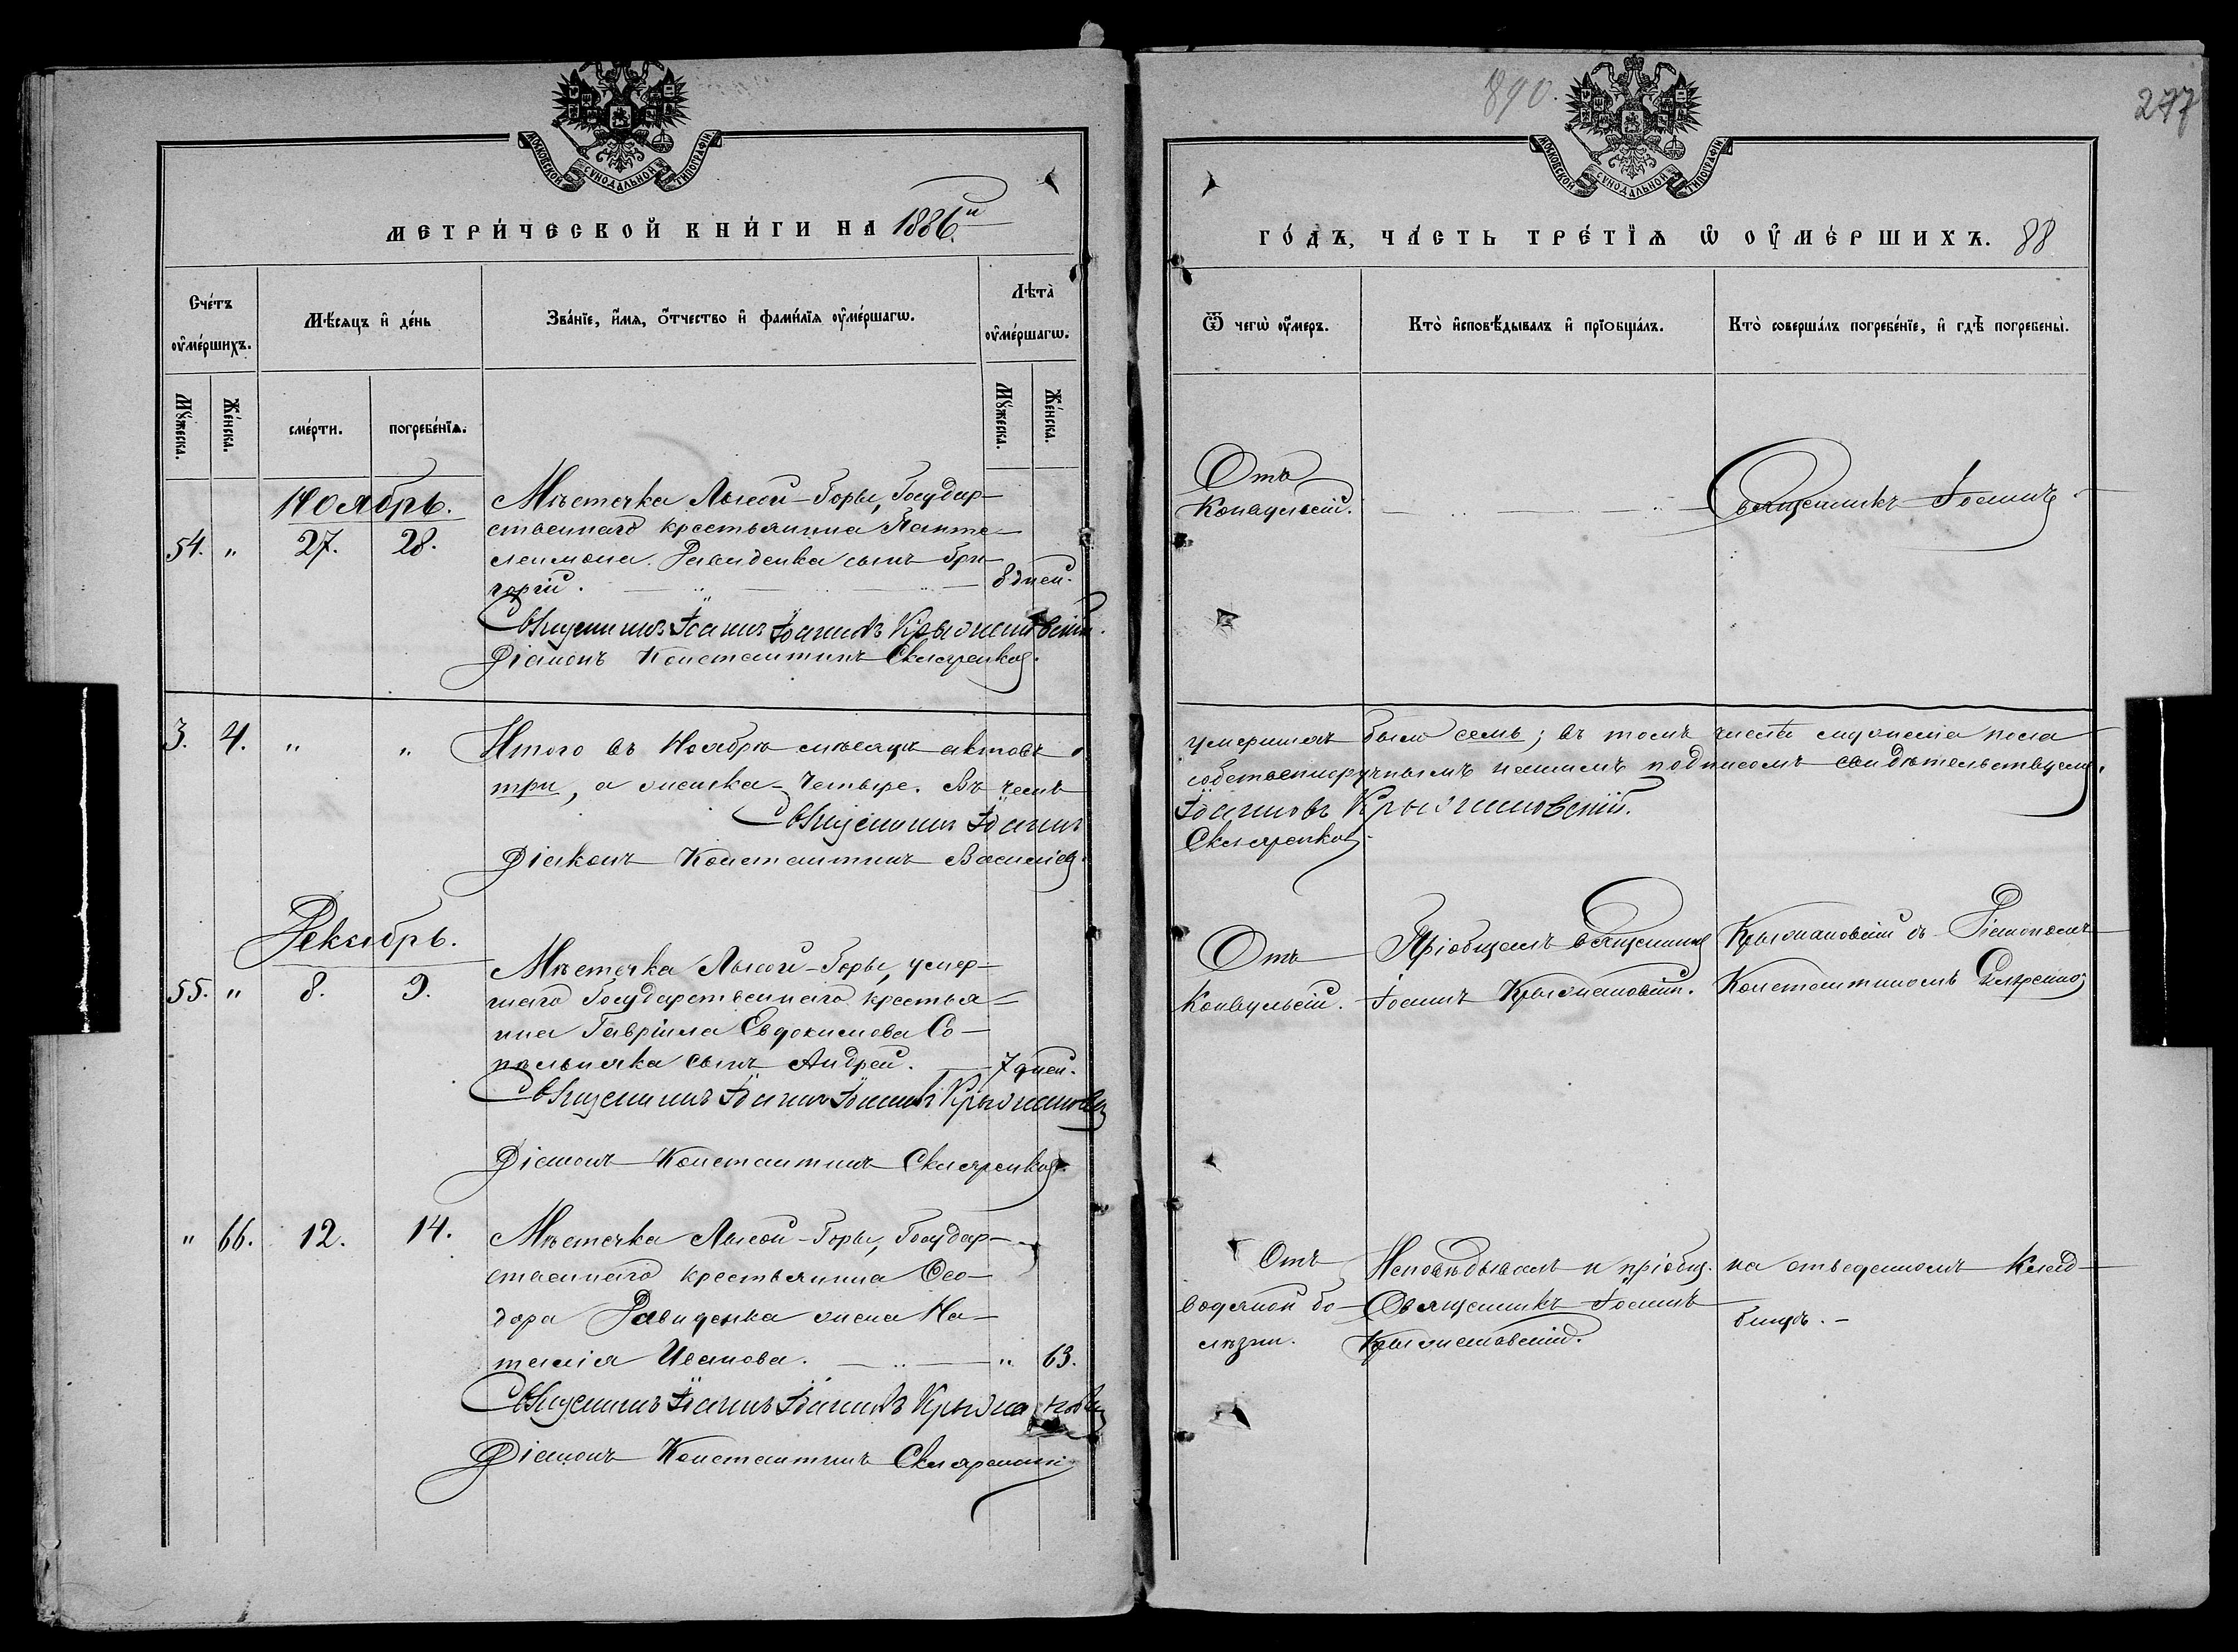 МОСКОВСКОЙ СѴНОДАЛЬНОЙ ТИПОГРАФІИ
МЕТРИ́ЧЕСКОЙ КНИ́ГИ НА 1886й
Счéтъ ᲂу҆мéршихъ.
Мѣ́сяцъ и҆ дéнь
Звáнїе, и҆́мя, ѻ҆́тчество и҆ фами́лїя ᲂу҆мéршагѡ.
Лѣтà ᲂу҆мéршагѡ.
Мꙋ́жеска.
Жéнска.
смéрти.
погребéнїя.
Мꙋ́жеска.
Жéнска.
Ноябрь.
54. " 27. 28.
Мѣстечка Лысой-Горы, Государ-
ственнаго крестьянина Панте-
леимона Давиденка сынъ Гри-
горій. 8 дней.
Священникъ Іоаннъ Іоанновъ Крыжановскій.
Діаконъ Константинъ Скляренковъ.
3. 4. " "
Итого въ Ноябрѣ мѣсяцѣ актовъ о
три, а женска - четыре. Въ чемъ
Священникъ Іоаннъ
Діаконъ Константинъ Василіевъ
Декабрь.
55. " 8. 9.
Мѣстечка Лысой-Горы, умер-
шаго Государственнаго крестья-
нина Гавріила Евдокимова Со-
пѣльника сынъ Андрей. 7 дней.
Священникъ Іоаннъ Іоанновъ Крыжановскій
Діаконъ Константинъ Скляренковъ.
" 66. 12. 14.
Мѣстечка Лысой-Горы, Государ-
ственнаго крестьянина Ѳео-
дора Давиденка жена На-
талія Иванова. " 63.
Священникъ Іоаннъ Іоанновъ Крыжановскій
Діаконъ Константинъ Скляренковъ
890.
277
МОСКОВСКОЙ СѴНОДАЛЬНОЙ ТИПОГРАФІИ
ГО́ДЪ, ЧА́СТЬ ТРЕ́ТІѦ Ѡ҆ ОУ҆МЕ́РШИХЪ. 88
Ѿ чегѡ̀ ᲂу҆́меръ.
Кто̀ и҆сповѣ́дывалъ и҆ прїѻбщáлъ.
Кто̀ совершáлъ погребéнїе, и҆ гдѣ̀ погребены̀.
Отъ
Конвульсій.
Священникъ Іоаннъ
умершихъ было семь; въ томъ числѣ мужеска пола
собственноручнымъ нашимъ подписомъ свидѣтельствуемъ.
Іоанновъ Крыжановскій.
Скляренковъ
Отъ
Конвульсій.
Пріобщалъ Священникъ
Іоаннъ Крыжановскій.
Крыжановскій съ Діакономъ
Константиномъ Скляренко
Отъ
водяной бо-
лѣзни.
Исповѣдывалъ и пріобщ.
Священникъ Іоаннъ
Крыжановскій.
на отведенномъ клад-
бищѣ.